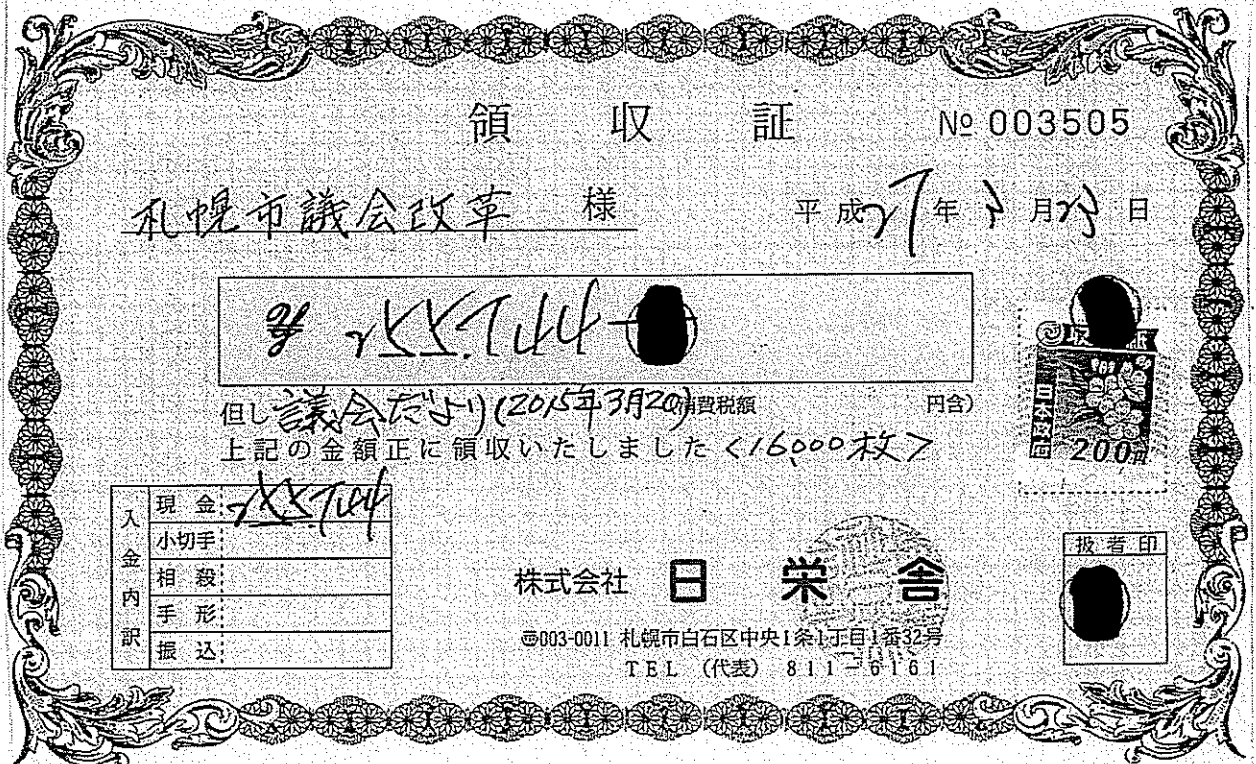 領収証 № 003505
札幌市議会改革 様 平成27年3月23日
¥ 255,744-
但し 議会だより(2015年3月20) 消費税額 円含)
上記の金額正に領収いたしました <16,000枚>
収 紙
日本政府
200円
入金内訳
現金 255,744
小切手
相殺
手形
振込
扱者印
株式会社 日栄舎
〠003-0011 札幌市白石区中央1条1丁目1番32号
TEL (代表) 811-6161